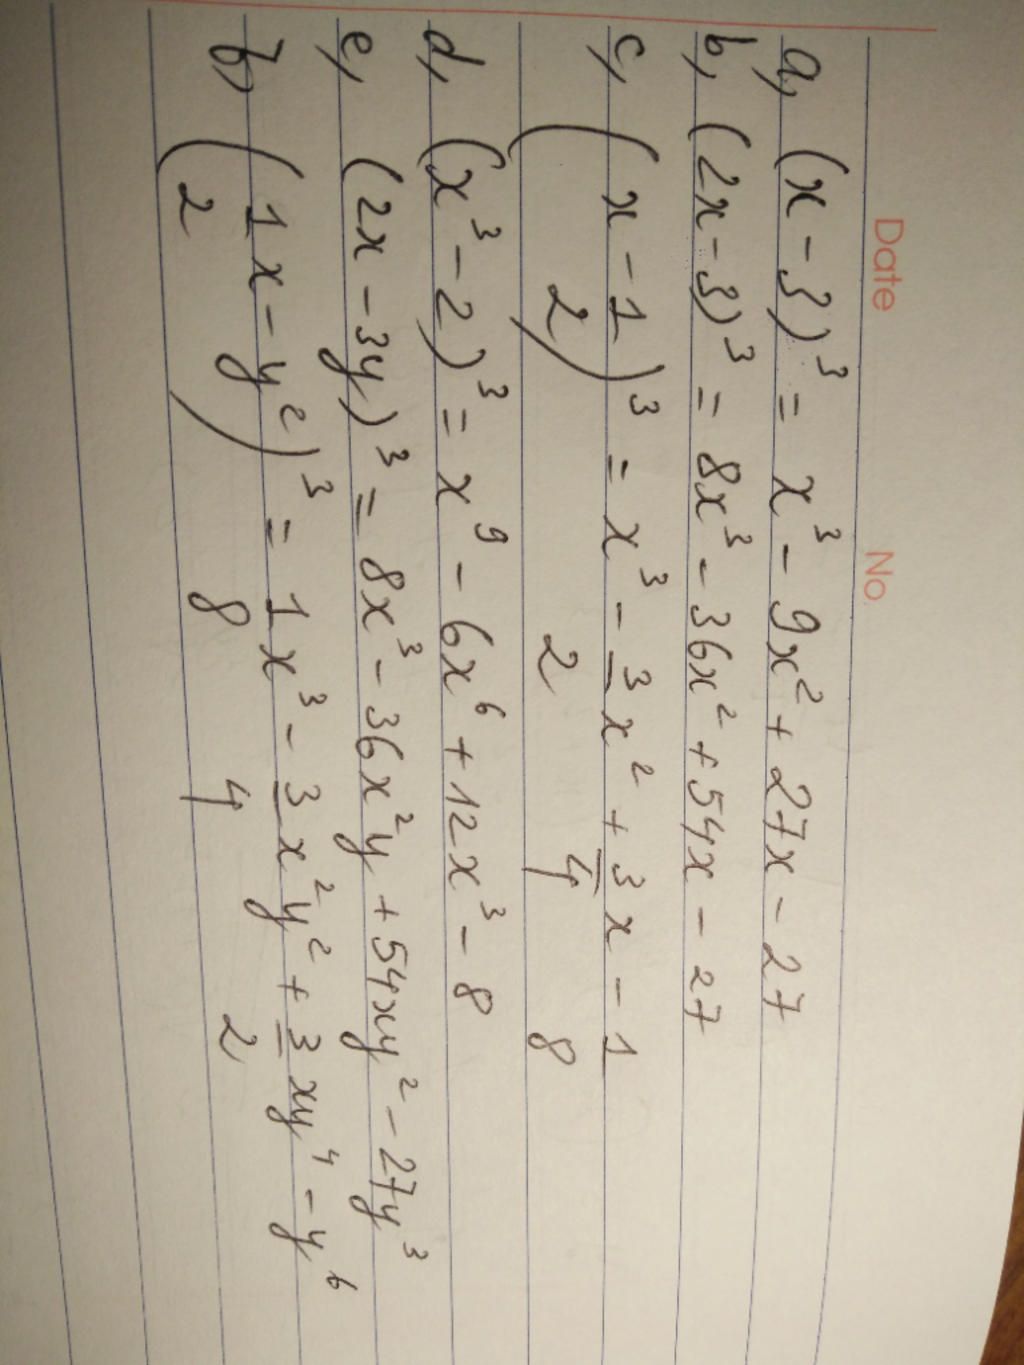 Date No
a, (x - 3)³ = x³ - 9x² + 27x - 27
b, (2x - 3)³ = 8x³ - 36x² + 54x - 27
c, (x - 1/2)³ = x³ - 3/2 x² + 3/4 x - 1/8
d, (x³ - 2)³ = x⁹ - 6x⁶ + 12x³ - 8
e, (2x - 3y)³ = 8x³ - 36x²y + 54xy² - 27y³
b, (1/2 x - y²)³ = 1/8 x³ - 3/4 x²y² + 3/2 xy⁴ - y⁶